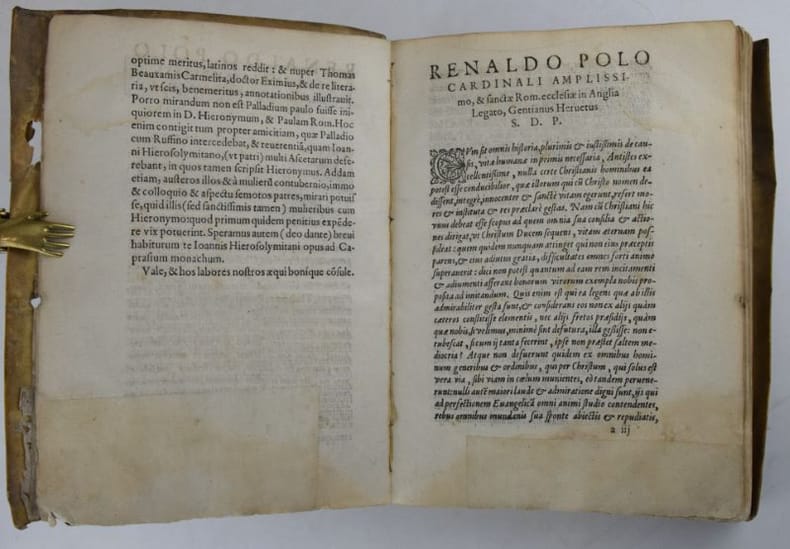 optime meritus, latinos reddit: & nuper Thomas
Beauxamis Carmelita, doctor Eximius, & de re litera-
ria, vt scis, benemeritus, annotationibus illustrauit.
Porro mirandum non est Palladium paulo fuisse ini-
quiorem in D. Hieronymum, & Paulam Rom. Hoc
enim contigit tum propter amicitiam, quæ Palladio
cum Ruffino intercedebat, & reuerentiã, quam Ioan-
ni Hierosolymitano, (vt patri) multi Ascetarum defe-
rebant, in quos tamen scripsit Hieronymus. Addam
etiam, austeros illos & à mulierũ contubernio, immo
& colloquio & aspectu semotos patres, mirari potuis
se, quid illis (sed sanctissimis tamen) mulieribus cum
Hieronymo: quod primum quidem penitius expẽde-
re vix potuerint. Speramus autem (deo dante) breui
habiturum te Ioannis Hierosolymitani opus ad Ca-
prasium monachum.
Vale, & hos labores nostros æqui bonique cõsule.
RENALDO POLO
CARDINALI AMPLISSI-
mo, & sanctæ Rom. ecclesiæ in Anglia
Legato, Gentianus Heruetus
S. D. P.
Vm sit omnis historia, plurimis & iustissimis de cau-
sis, vitæ humanæ in primis necessaria, Antistes ex-
cellentissime, nulla certe Christianis hominibus ea
potest esse conducibilior, quæ illorum qui cũ Christo nomen de-
dissent, integrè, innocenter & sanctè vitam egerunt, refert mo-
res & instituta & res præclarè gestas. Nam cũ Christiani hic
vnus debeat esse scopus ad quem omnia sua consilia & actio-
nes dirigat, vt Christum Ducem sequens, vitam æternam pos-
sideat: quem quidem nunquam attinget qui non eius præceptis
parens, & eius adiutus gratia, difficultates omnes forti animo
superauerit: dici non potest quantum ad eam rem incitamenti
& adiumenti afferant bonorum virorum exempla nobis pro-
posita ad imitandum. Quis enim est qui ea legens quæ ab illis
admirabiliter gesta sunt, & considerans eos non ex alijs quàm
cæteros constitisse elementis, nec alijs fretos præsidijs, quàm
quæ nobis, si velimus, minimè sint defutura, illa gessisse: non e-
rubescat, si cum ij tanta fecerint, ipse non præstet saltem me-
diocria? Atque non defuerunt quidem ex omnibus homi-
num generibus & ordinibus, qui per Christum, qui solus est
vera via, sibi viam in cœlum munientes, eò tandem peruene-
runt: nulli autẽ maiori laude & admiratione digni sunt, ijs qui
ad perfectionem Euangelicã omni animi studio contendentes,
rebus omnibus mundanis sua sponte abiectis & repudiatis,
a iij